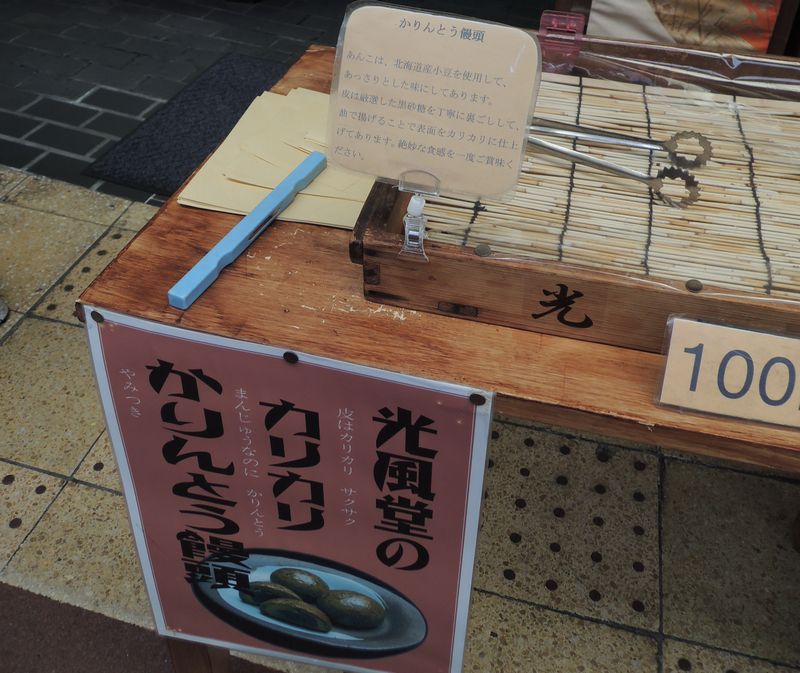 かりんとう饅頭
あんこは、北海道産小豆を使用して、
あっさりとした味にしてあります。
皮は厳選した黒砂糖を丁寧に裏ごしして、
油で揚げることで表面をカリカリに仕上
げてあります。絶妙な食感を一度ご賞味く
ださい。
光
100
光風堂の
皮はカリカリ サクサク
カリカリ
まんじゅうなのに かりんとう
かりんとう饅頭
やみつき